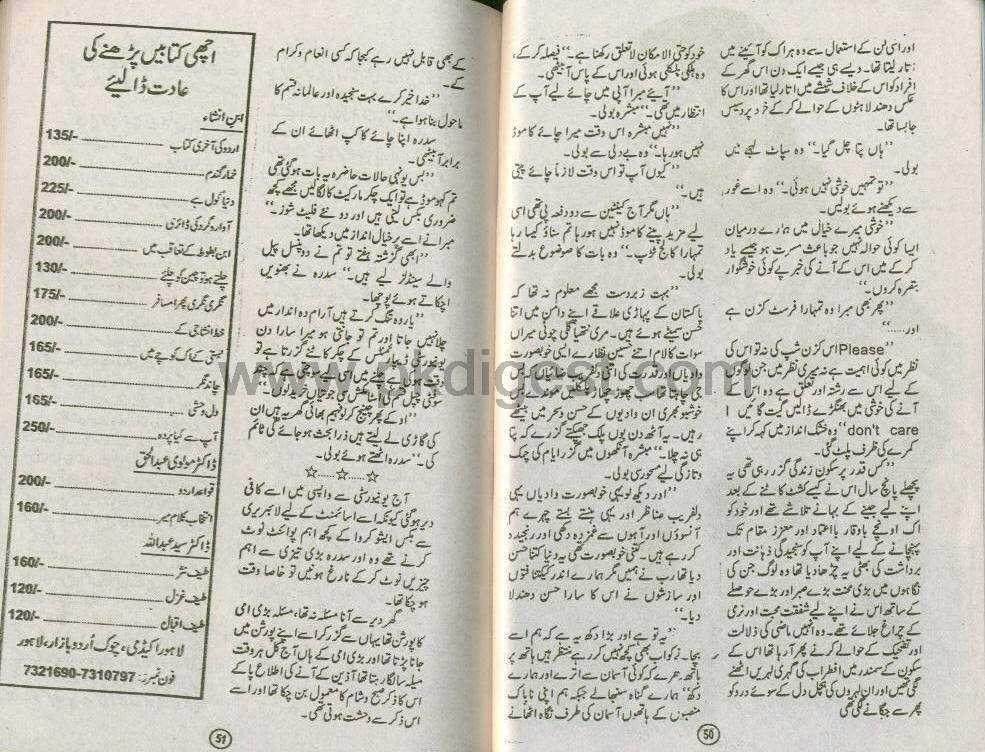 اور اسی لن کے استعمال سے وہ ہر اک کو آئینے میں
اتار لیتا تھا۔ ویسے ہی جیسے ایک دن اس گھر کے
افراد کو اس کے خلاف شیشے میں اتار لیا تھا اور اس کا
عکس دھندلاہٹوں کے حوالے کر کے خود پردیس
جا بسا تھا۔
”ہاں پتا چل گیا۔“ وہ سپاٹ لہجے میں
بولی۔
”تو تمہیں خوشی نہیں ہوئی۔“ وہ اسے غور
سے دیکھتے ہوئے بولیں۔
”خوشی میرے خیال میں ہمارے درمیان
ایسا کوئی حوالہ نہیں جو باعث مسرت ہو جسے یاد
کر کے میں اس کے آنے کی خبر پے کوئی خوشگوار
تبصرہ کروں۔“
”پھر بھی مبرا وہ تمہارا فرسٹ کزن ہے
اور.....“
”Please اس کزن شپ کی نہ تو اس کی
نظر میں کوئی اہمیت ہے نہ میری نظر میں جن لوگوں
کے لیے اس سے رشتہ اور تعلق ہے وہ اس کے
آنے کی خوشی میں بھنگڑے ڈالیں گیت گائیں I
don't care“ وہ خشک انداز میں کہہ کر اپنے
کمرے کی طرف پلٹ گئی۔
”کس قدر پر سکون زندگی گزر رہی تھی یہ
پچھلے پانچ سال اس نے کیسے کشٹ کاٹنے کے بعد
اپنے لیے جینے کے بہانے تلاشے تھے اور خود کو
اک اونچے باوقار با اعتماد اور معزز مقام تک
پہنچانے کے لیے اپنے آپ کو سنجیدگی ذہانت اور
برداشت کی بھٹی پہ چڑھا دیا تھا وہ لوگ جن کی
نگاہوں میں بڑی محنت بڑے صبر اور بڑے حوصلے
کے ساتھ اس نے اپنے لیے شفقت محبت اور نرمی
کے چراغ جلائے تھے۔ وہ انہیں ماضی کی ذلالت
اور تضحیک کے حوالے کرنے پھر آ رہا تھا اس کے
سکون کے سمندر میں اضطراب کی گہری لہریں اٹھنے
لگی تھیں اور ان لہروں کی ہلچل دل کے سوئے درد کو
پھر سے جگانے لگی تھی
خود کو حتی الامکان لاتعلق رکھنا ہے۔“ فیصلہ کر کے،
وہ ہلکی پھلکی ہوئی اور اس کے پاس آ بیٹھی۔
”آیئے میرا آپی میں چائے لیے آپ کے
انتظار میں تھی۔“ مبشرہ بولی۔
”نہیں مبشرہ اس وقت میرا چائے کا موڈ
نہیں ہو رہا۔“ وہ بے دلی سے بولی۔
”کیوں آپ تو اس وقت لازماً چائے پیتی
ہیں۔“
”ہاں مگر آج کینٹین سے دو دفعہ پی تھی اسی
لیے مزید پینے کا موڈ نہیں ہو رہا تم سناؤ کیسا رہا
تمہارا کالج ٹرپ۔“ وہ بات کا موضوع بدلتے
بولی۔
”بہت زبردست مجھے معلوم نہ تھا کہ
پاکستان کے پہاڑی علاقے اپنے دامن میں اتنا
حسن سمیٹے ہوئے ہیں۔ مری نتھیا گلی چوئی میراں
سوات کلام اتنے حسین نظارے ایسی خوبصورت
وادیاں اور قدرت کی اتنی دلفریب رعنائیاں کہ
جی چاہتا تھا سب چھوڑ چھاڑ کے
خوشبو بھری ان وادیوں کے حسن و سحر میں بیٹھے
رہیں۔ یہ آٹھ دن یوں پلک جھپکتے گزرے کہ پتا
ہی نہ چلا۔“ مبشرہ آنکھوں میں گزرے ایام کی چمک
و تازگی لیے مسحور سی بولی۔
”اور دیکھ لو یہی خوبصورت وادیاں یہی
دلفریب مناظر اور یہی ہنستے بستے چہرے ہم
آنسوؤں اور آہوں سے غمزدہ دکھی اور رنجیدہ
کر رہے ہیں۔ کتنی خوبصورت تھی یہ دنیا کتنا حسن
دیا تھا رب نے ہمیں مگر ہمارے اندر کی کثافتوں
اور سازشوں نے اس کا سارا حسن دھندلا
دیا۔“
”یہ تو ہے اور بڑا دکھ یہ ہے کہ ہم اسے
بچا۔ نے کو اب بھی کچھ نہیں کر رہے منتظر ہیں ہاتھ پر
ہاتھ دھرے کہ کوئی آسمان سے اترے اور ہمارے
دکھ“ ہمارے گناہ سنبھالے جبکہ ہم اپنی ناپاک
منصبوں کے ہاتھوں آسمان کی طرف نگاہ اٹھانے
50
کے بھی قابل نہیں رہے کجا کہ کسی انعام و کرام
کے۔
”خدا خیر کرے بہت سنجیدہ اور عالمانہ قسم کا
ماحول بنا ہوا ہے۔“
سدرہ اپنا چائے کا کپ اٹھائے ان کے
برابر آ بیٹھی۔
”بس یونہی حالات حاضرہ پہ بات ہو گئی تھی
تم کہو موڈ ہے تو ایک چکر مارکیٹ کا لگا لیں مجھے کچھ
ضروری بکس لینی ہیں اور دو نئے فلیٹ شوز۔“
میرا نے اسے پر خیال انداز میں دیکھا تھا۔
”ابھی گزشتہ ہفتے تو تم نے دو پنسل ہیل
والے سینڈلز لیے ہیں۔“ سدرہ نے بھنویں
اچکاتے ہوئے پوچھا۔
”یار وہ تنگ کرتے ہیں آرام دہ انداز میں
چلا نہیں جاتا اور تم تو جانتی ہو میرا سارا دن
یونیورسٹی ڈیپارٹمنٹس کے چکر کاٹتے گزرتا ہے تو
”او کے پھر چینج کر لو ہیم بھائی گھر پہ ہیں ان
کی گاڑی لے لیتے ہیں ذرا بچت ہو جائے گی ٹائم
کی۔“ سدرہ اٹھتے ہوئے بولی۔
☆.....☆.....☆
آج یونیورسٹی سے واپسی میں اسے کافی
دیر ہو گئی کیونکہ اسے اسائنمنٹ کے لیے لائبریری
سے بکس ایشو کروا کے کچھ اہم پوائنٹ نوٹ
کرنے تھے وہ اور سدرہ بڑی تیزی سے اہم
چیزیں نوٹ کر کے فارغ ہوئیں تو خاصا وقت
ہو چکا تھا۔
گھر دیر سے آنا مسئلہ نہ تھا، مسئلہ بڑی امی
کا پورشن تھا یہاں سے گزر کر اسے اپنے پورشن میں
جانا پڑتا تھا اور بڑی امی کے ہاں آج کل ہر وقت
میلہ سا لگا رہتا تھا آذین کے آنے کی اطلاع پا کے
اس کا ذکر صبح و شام کا معمول بن چکا تھا اور اسے
اس ذکر سے وحشت ہوتی تھی۔
اچھی کتابیں پڑھنے کی
عادت ڈالیئے
ابن انشاء
اردو کی آخری کتاب 135/-
خمار گندم 200/-
دنیا گول ہے 225/-
آوارہ گرد کی ڈائری 200/-
ابن بطوطہ کے تعاقب میں 200/-
چلتے ہو تو چین کو چلئے 130/-
نگری نگری پھرا مسافر 175/-
خط انشا جی کے 200/-
بستی کے اک کوچے میں 165/-
چاند نگر 165/-
دل وحشی 165/-
آپ سے کیا پردہ 250/-
ڈاکٹر مولوی عبدالحق
قواعد اردو 200/-
انتخاب کلام میر 160/-
ڈاکٹر سید عبداللہ
طیف نثر 160/-
طیف غزل 120/-
طیف اقبال 120/-
لاہور اکیڈمی، چوک اُردو بازار، لاہور
فون نمبرز: 7310797-7321690
51
www.pkdigest.com